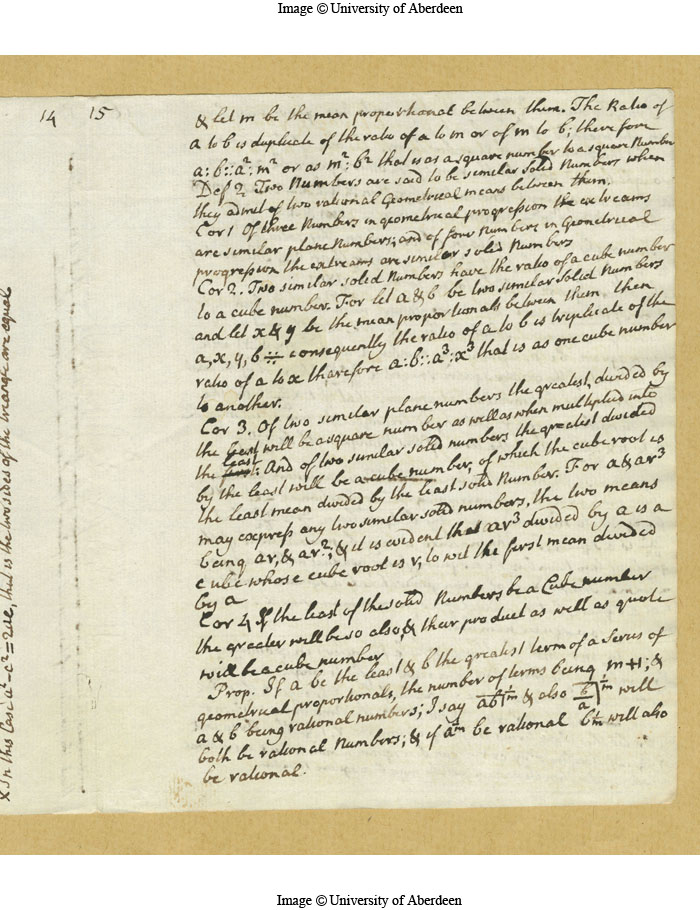 Image © University of Aberdeen
14 15
& let m be the mean proportional between them. The Ratio of
a to b is duplicate of the ratio of a to m or of m to b; therefore
a : b :: a² : m² or as m² : b² that is as a square number to a square Number
Def 2. Two Numbers are said to be similar solid Numbers when
they admit of two rational Geometrical means between them.
Cor 1 Of three Numbers in geometrical progression the extreams
are similar plane Numbers; and of four numbers in Geometrical
progression the extreams are similar solid Numbers
Cor 2. Two similar solid Numbers have the ratio of a cube number
to a cube number. For let a & b be two similar solid Numbers
and let x & y be the mean proportionals between them then
a, x, y, b ∺ consequently the ratio of a to b is triplicate of the
ratio of a to x therefore a : b :: a³ : x³ that is as one cube number
to another.
Cor 3. Of two similar plane numbers the greatest divided by
the least will be a square number as well as when multiplied into
the least. And of two similar solid numbers the greatest divided
by the least will be a cube number, of which the cube root is
the least mean divided by the least solid Number. For a & ar³
may express any two similar solid numbers, the two means
being ar, & ar²; & it is evident that ar³ divided by a is a
cube whose cube root is r, to wit the first mean divided
by a
Cor 4 If the least of the solid Numbers be a Cube number
the greater will be so also, & their product as well as quote
will be a cube number
Prop. If a be the least & b the greatest term of a Series of
geometrical proportionals, the number of terms being m+1; &
a & b being rational numbers; I say ab|^1/m & also b/a|^1/m will
both be rational Numbers; & if a^1/m be rational b^1/m will also
be rational.
x In this Case a² - c² = 2ue, that is the two sides of the triangle are equal
Image © University of Aberdeen